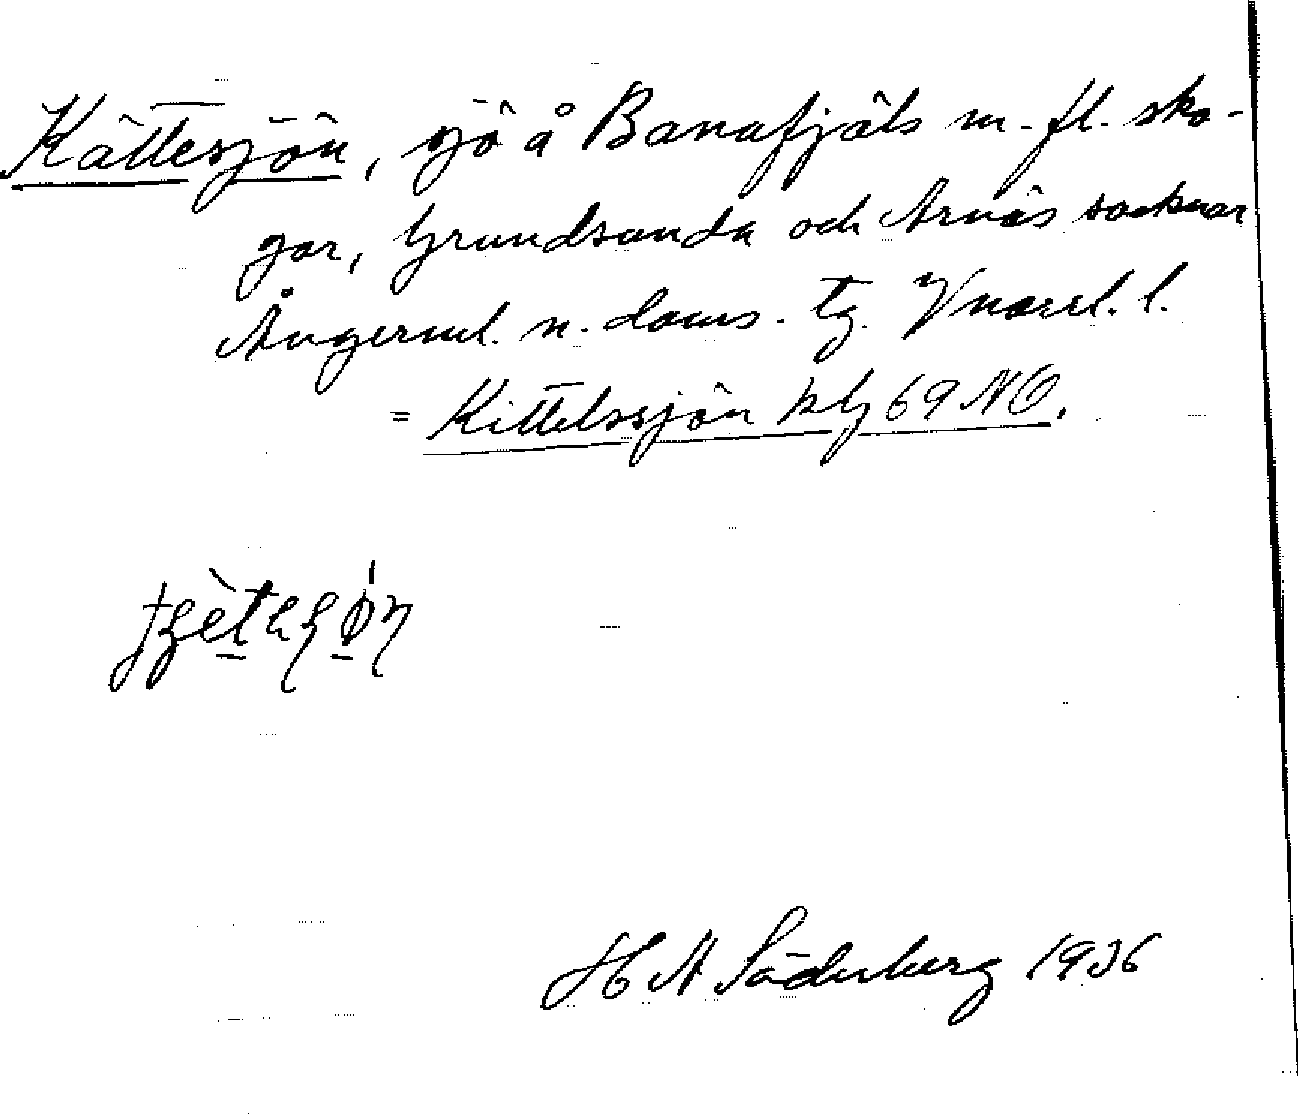 Kättesjön, sjö å Banafjäls m. fl. sko-
gar, Grundsunda och Arnäs socknar
Ångerml. n. doms. tg. Vnorrl. l.
= Kittelssjön kbl 69 NO.
H A Söderberg 1936